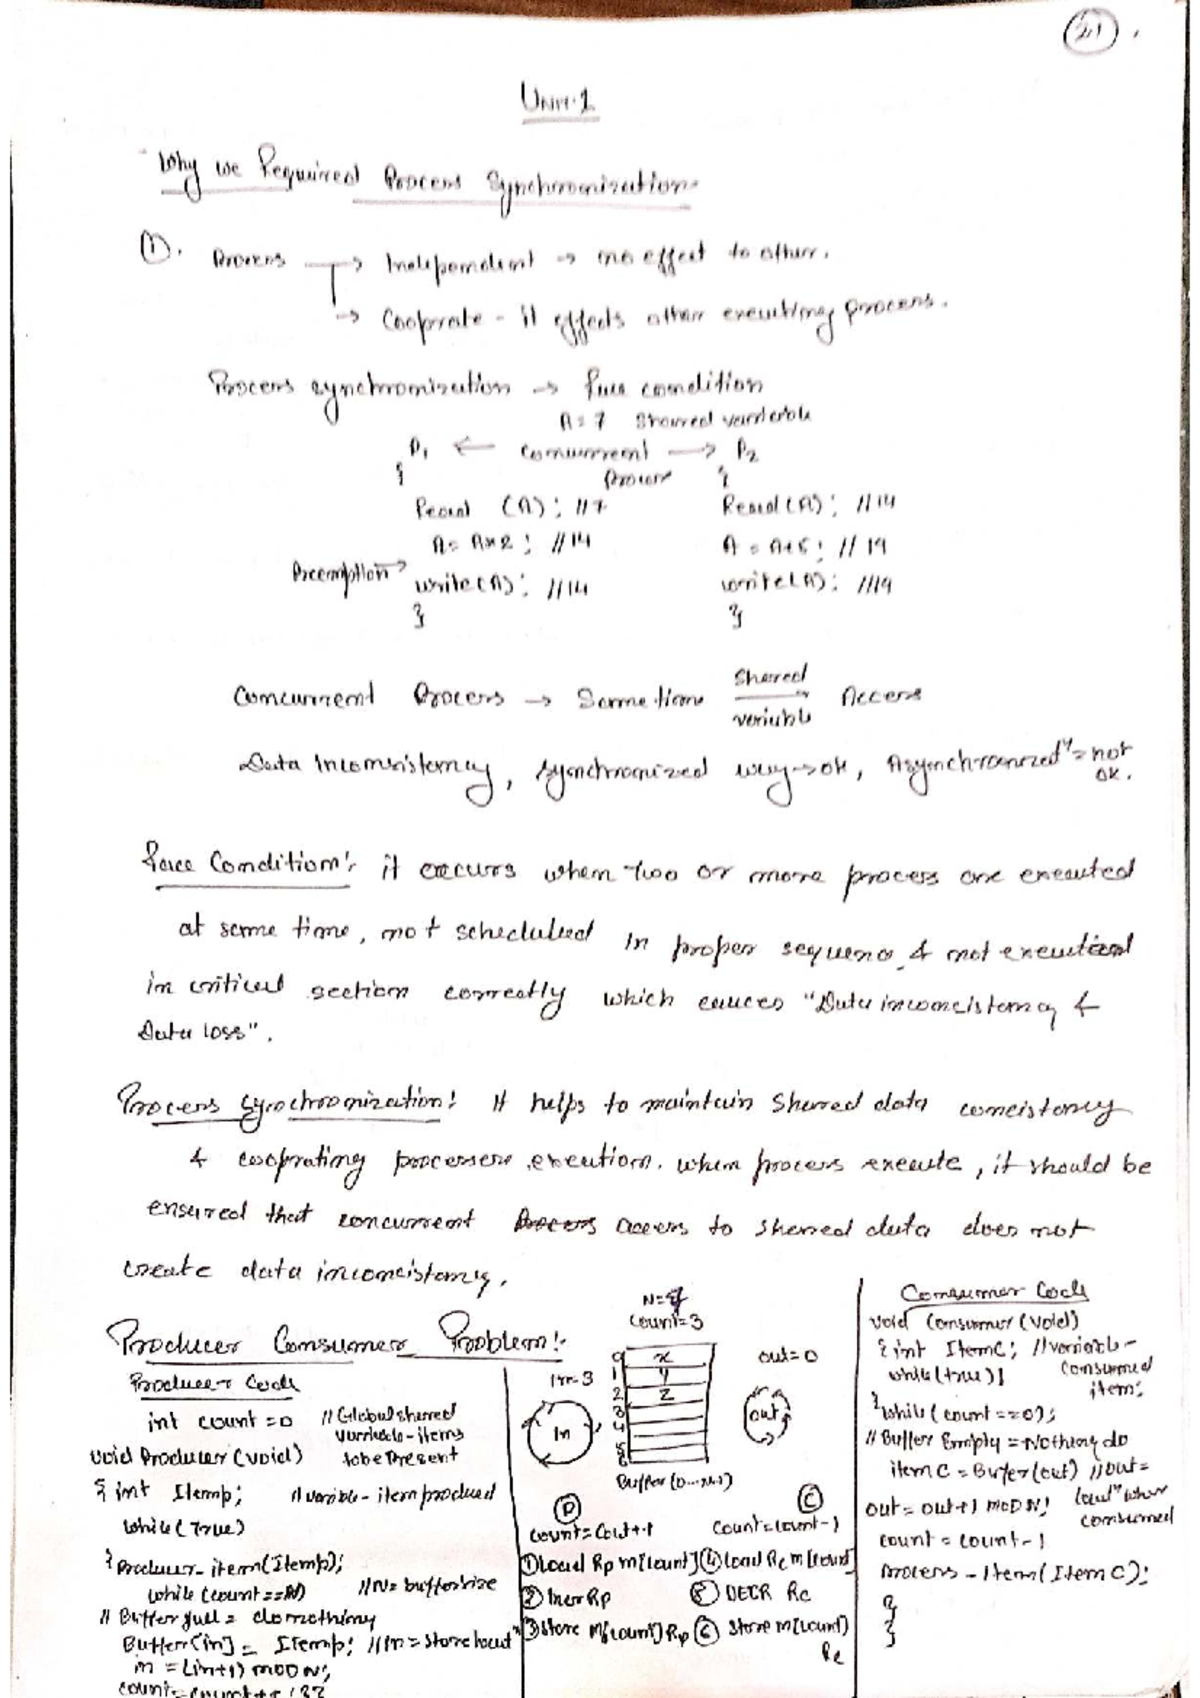 21
Unit-1
Why we Required Process Synchronization
①. Process → Independent → no effect to other.
→ Cooprate - it effects other executing process.
Process synchronization → Race condition
A=7 Shared variable
P1 ← concurrent → P2
Process
{ {
Read (A); //7 Read(A); //14
A = A*2; //14 A = A+5; //19
Preemption → write(A); //14 write(A); //19
} }
Concurrent Process → Same time Shared variable Access
Data Inconsistency, synchronized way → ok, Asynchronized" = not ok.
Race Condition: it occurs when two or more process are executed
at same time, not scheduled in proper sequence & not executed
in critical section correctly which causes "Data inconcistency &
Data loss".
Process Synchronization: It helps to maintain Shared data concistency
& cooprating processes execution. when process execute, it should be
ensured that concurrent Process access to shared data does not
create data inconcistency.
Producer Consumer Problem:-
Producer Code
int count = 0 //Global shared
variable - items
void Producer (void) to be Present
{ int Itemp; //variable - item produced
while (True)
{ Producer_item(Itemp);
while (count==N) //N= buffer size
// Buffer full = do nothing
Buffer[in] = Itemp; //in = store locat"
in = (in+1) mod N;
count = count+1
N=7
count=3
0 x
1 y
2 z
3
4
5
6
in=3
In
out=0
out
Buffer (0...N-1)
Ⓟ Ⓒ
count=cout+1 count=count-1
① Load Rp m[count] ④ Load Rc m[count]
② Incr Rp ⑤ DECR Rc
③ store m[count] Rp ⑥ store m[count]
Rc
Consumer Code
void Consumer (void)
{ int ItemC; //variable -
while(true) consumed
item;
{ while (count==0);
// Buffer Empty = Nothing do
itemC = Buffer(out) //out=
out = out+1 mod N; locat" when
consumed
count = count-1
Process - Item (Item C);
}
}